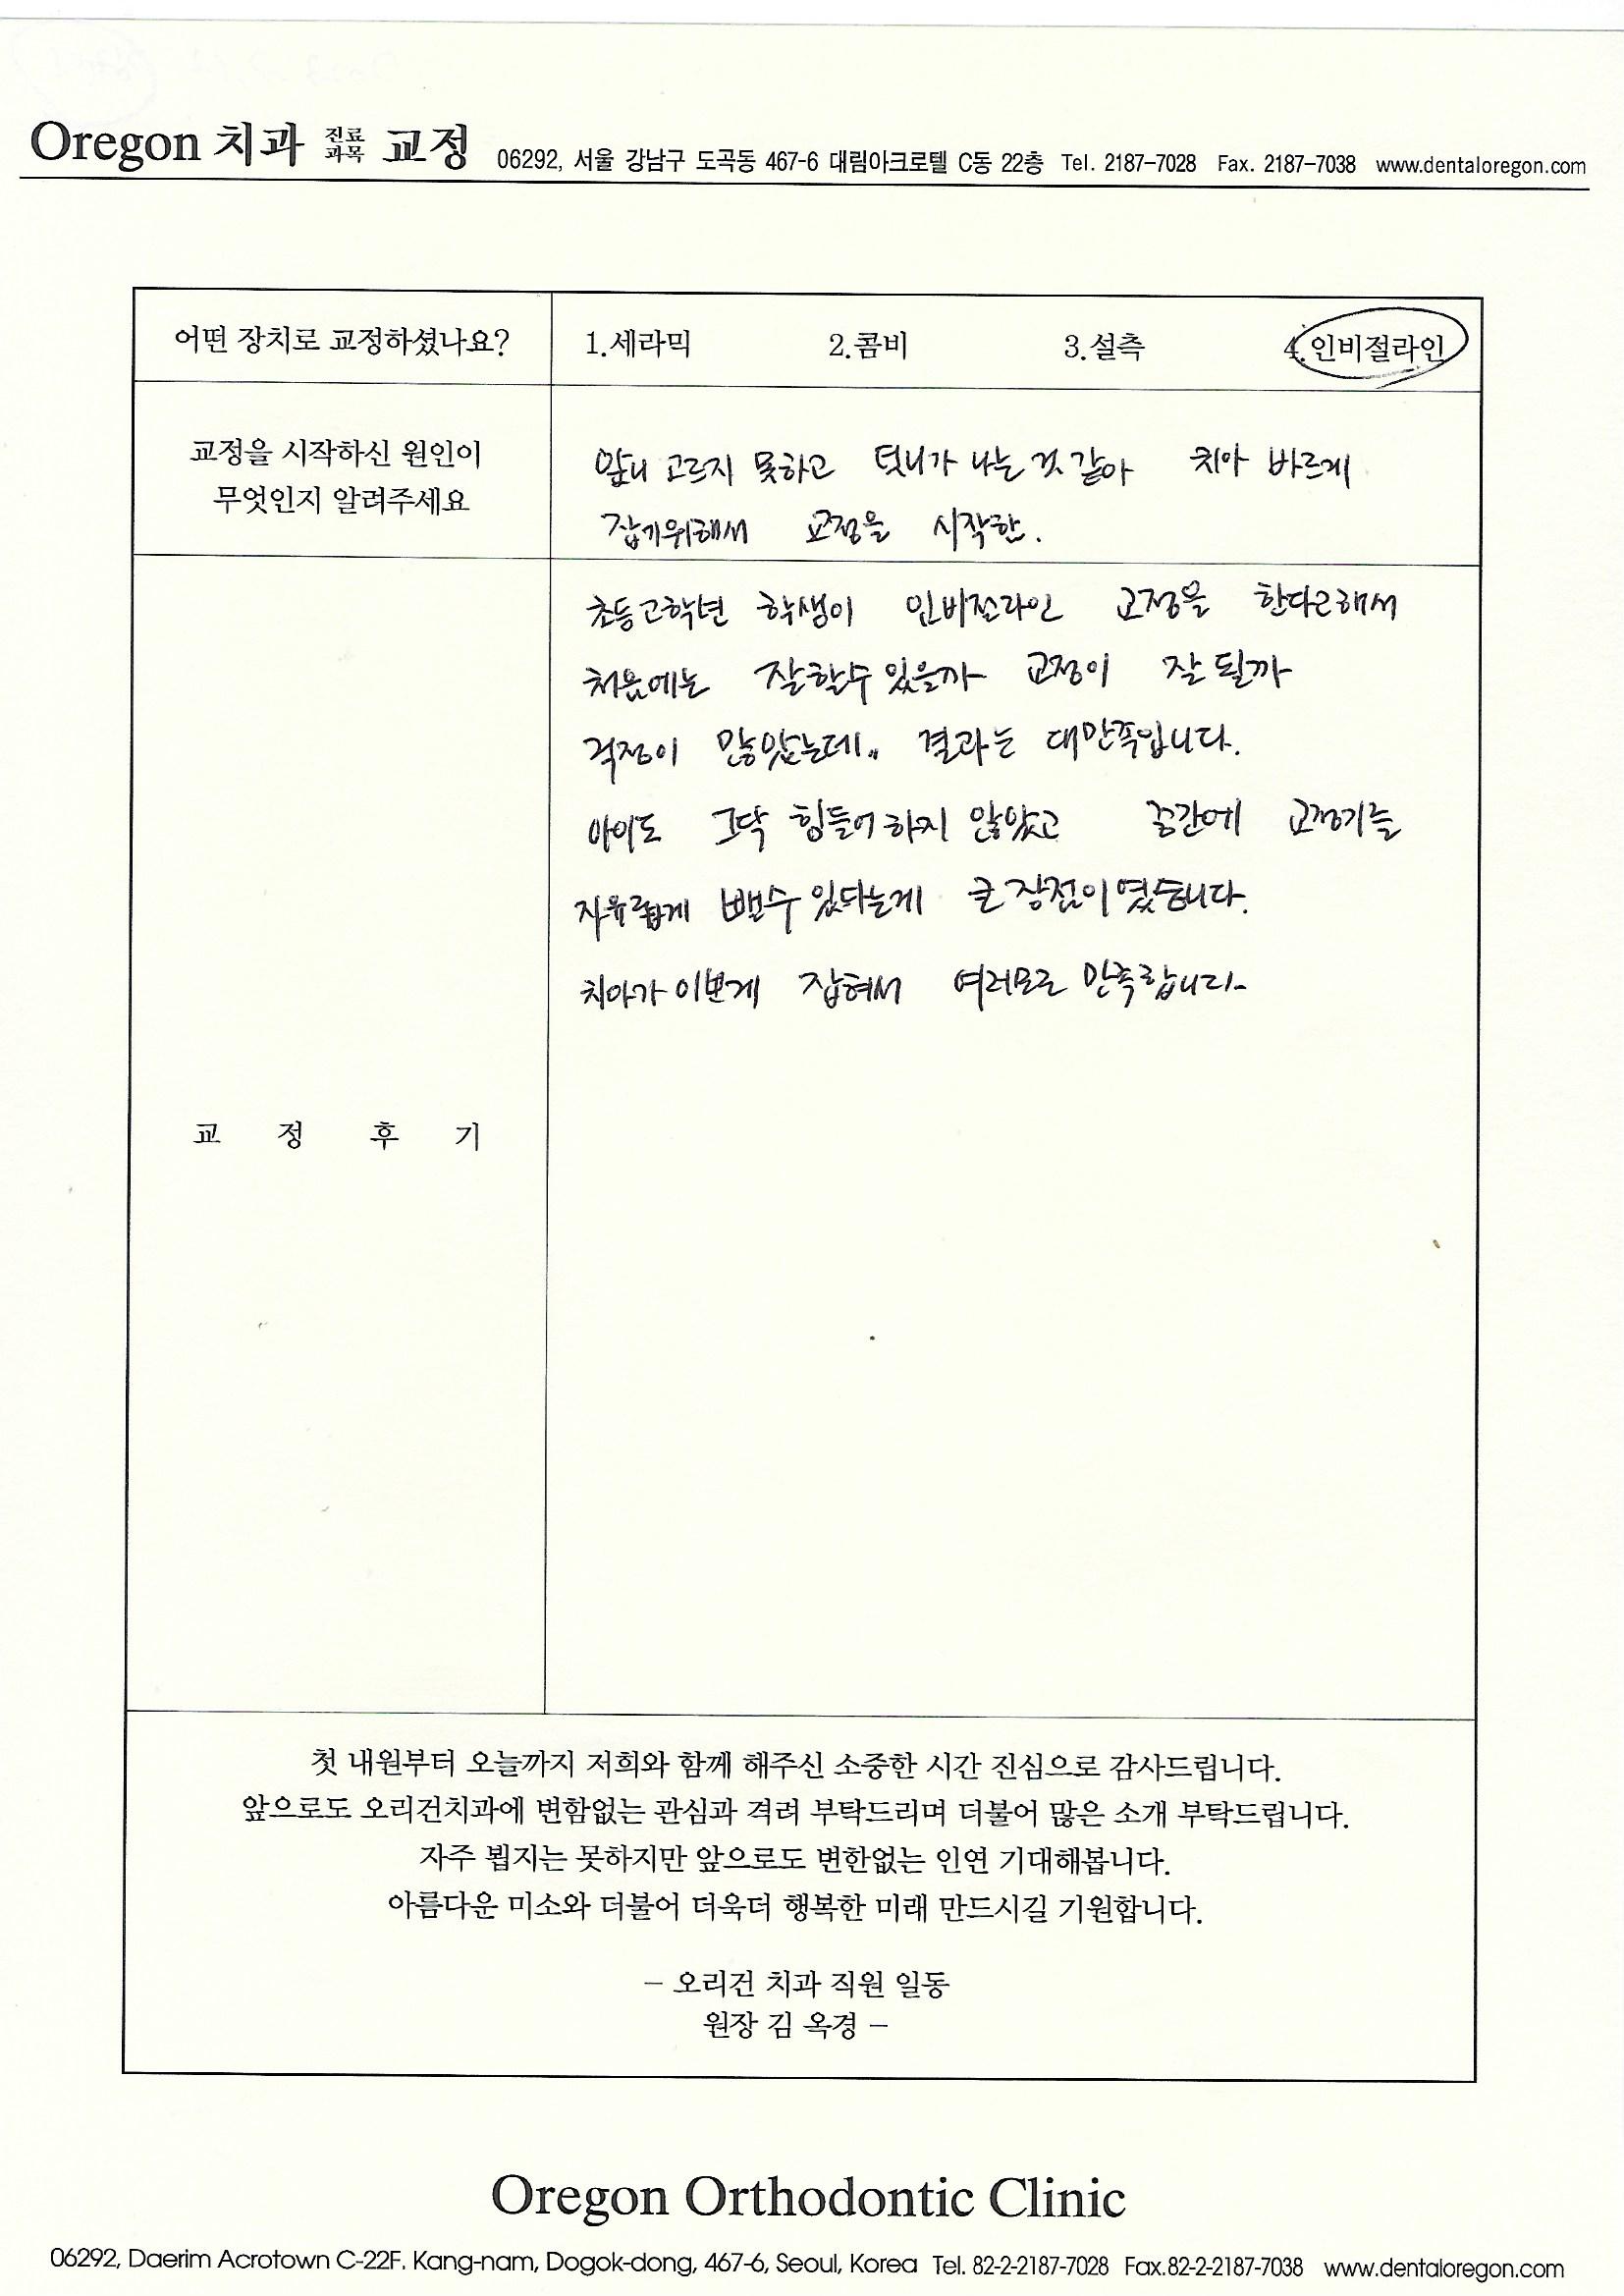 Oregon 치과 진료과목 교정 06292, 서울 강남구 도곡동 467-6 대림아크로텔 C동 22층 Tel. 2187-7028 Fax. 2187-7038 www.dentaloregon.com
어떤 장치로 교정하셨나요? 1.세라믹 2.콤비 3.설측 4.인비절라인
교정을 시작하신 원인이
무엇인지 알려주세요
앞니 고르지 못하고 덧니가 나는 것 같아 치아 바르게
잡기위해서 교정을 시작한.
교 정 후 기
초등고학년 학생이 인비절라인 교정을 한다고해서
처음에는 잘할수 있을까 교정이 잘 될까
걱정이 많았는데.. 결과는 대만족입니다.
아이도 그닥 힘들어 하지 않았고 중간에 교정기를
자유롭게 뺄수 있다는게 큰 장점이였습니다.
치아가 이쁘게 잡혀서 여러모로 만족합니다~
첫 내원부터 오늘까지 저희와 함께 해주신 소중한 시간 진심으로 감사드립니다.
앞으로도 오리건치과에 변함없는 관심과 격려 부탁드리며 더불어 많은 소개 부탁드립니다.
자주 뵙지는 못하지만 앞으로도 변한없는 인연 기대해봅니다.
아름다운 미소와 더불어 더욱더 행복한 미래 만드시길 기원합니다.
– 오리건 치과 직원 일동
원장 김 옥경 –
Oregon Orthodontic Clinic
06292, Daerim Acrotown C-22F. Kang-nam, Dogok-dong, 467-6, Seoul, Korea Tel. 82-2-2187-7028 Fax.82-2-2187-7038 www.dentaloregon.com